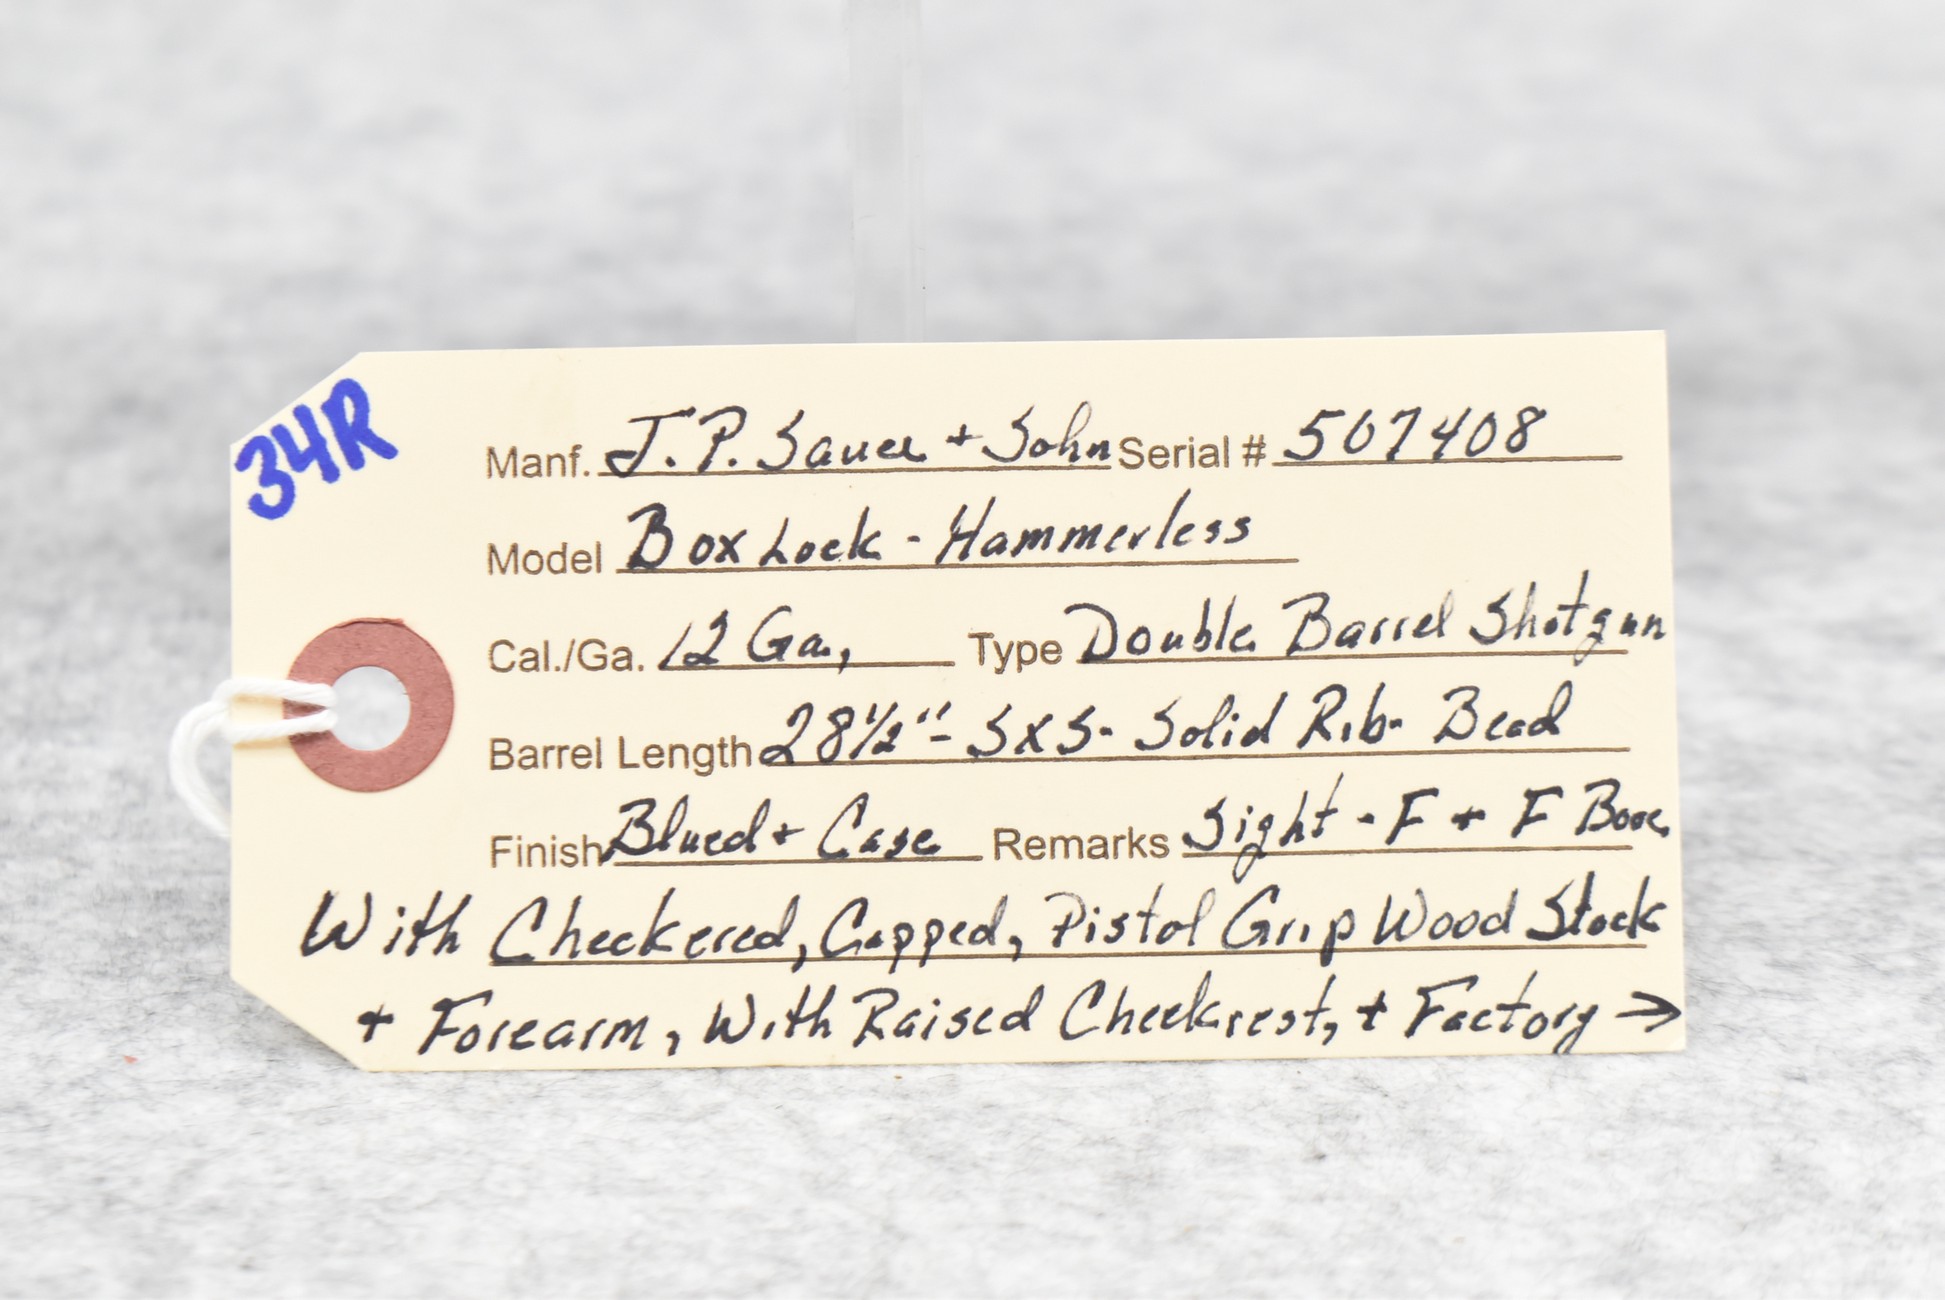 34R
Manf. J.P. Sauer + Sohn Serial # 507408
Model Box Lock - Hammerless
Cal./Ga. 12 Ga., Type Double Barrel Shotgun
Barrel Length 28 1/2" - S x S - Solid Rib - Bead
Finish Blued + Case Remarks Sight - F + F Bore
With Checkered, Capped, Pistol Grip Wood Stock
+ Forearm, With Raised Cheekrest, + Factory →